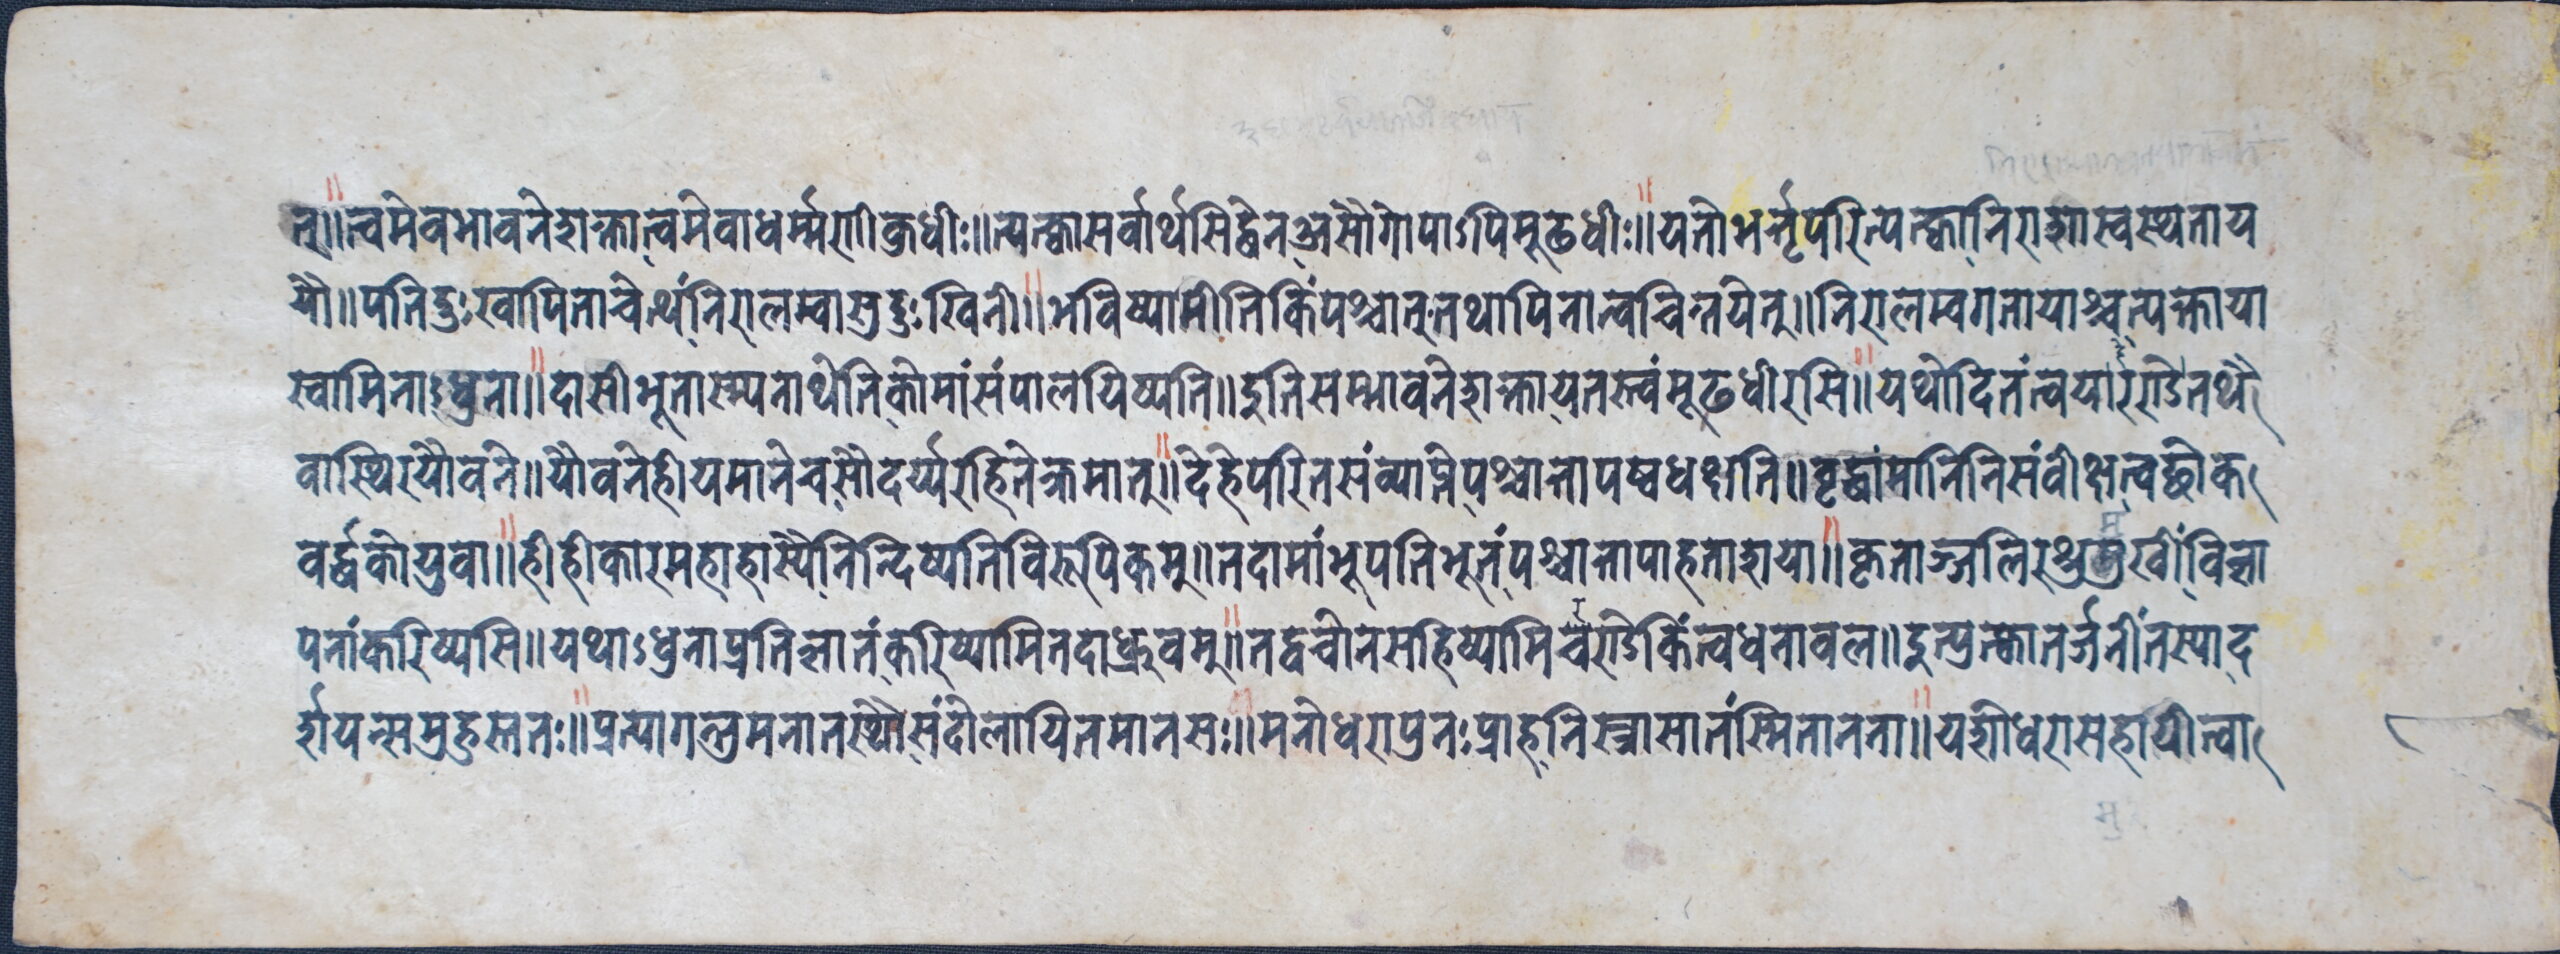 त्॥त्वमेवभावनेशक्तात्वमेवाधर्म्मरागीकुधीः॥त्यत्क्वासर्वार्थसिद्धेनअसौगोपाऽपिमूढधीः॥यतोभर्त्तृपरित्यत्क्वानिराशास्वस्थताय
यौ॥पतिदुःखापिताचेत्थंनिरालम्वासुदुःखिनी॥भविष्यामीतिकिंपश्चात्तथापिनान्वचिन्तयेत्॥निरालम्वगतायाश्चत्यक्ताया
स्वामिनाऽधुना॥दासीभूतास्म्यनाथेतिकोमांसंपालयिष्यति॥इतिसम्भावनेशक्तायतस्त्वंमूढधीरसि॥यथोदितंत्वयारराडेतथै
वास्थिरयौवने॥यौवनेहीयमानेचसौदर्य्यरहितेक्रमात्॥देहेपरितसंव्याप्तेपश्चात्तापष्वधक्षति॥वृद्धांमानिनिसंवीक्षत्वद्धीक
वर्द्धकोयुवा॥हीहीकारमहाहास्यैनिन्दिष्यतिविरूपिकम्॥तदामांभूपतिभूतंपश्चात्तापाहताशया॥कृताञ्जलिरश्रुमुखींविज्ञा
पनांकरिष्यसि॥यथाऽधुनाप्रतिज्ञातंकरिष्यामितदाध्रुवम्॥तद्वचोनसहिष्यामिचराडेकिंत्वधनावल॥इत्युत्क्वातर्जनींतस्याद
र्शयन्समुहुस्ततः॥प्रत्यागन्तुमनातस्थौसंदोलायितमानसः॥मनोधरापुनःप्राहनिस्त्रासातंस्मितानना॥यशोधरासहायोत्वा